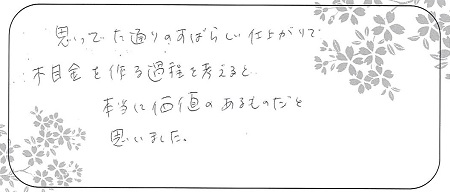 思ってた通りのすばらしい仕上がりで
木目金を作る過程を考えると
本当に価値のあるものだと
思いました。